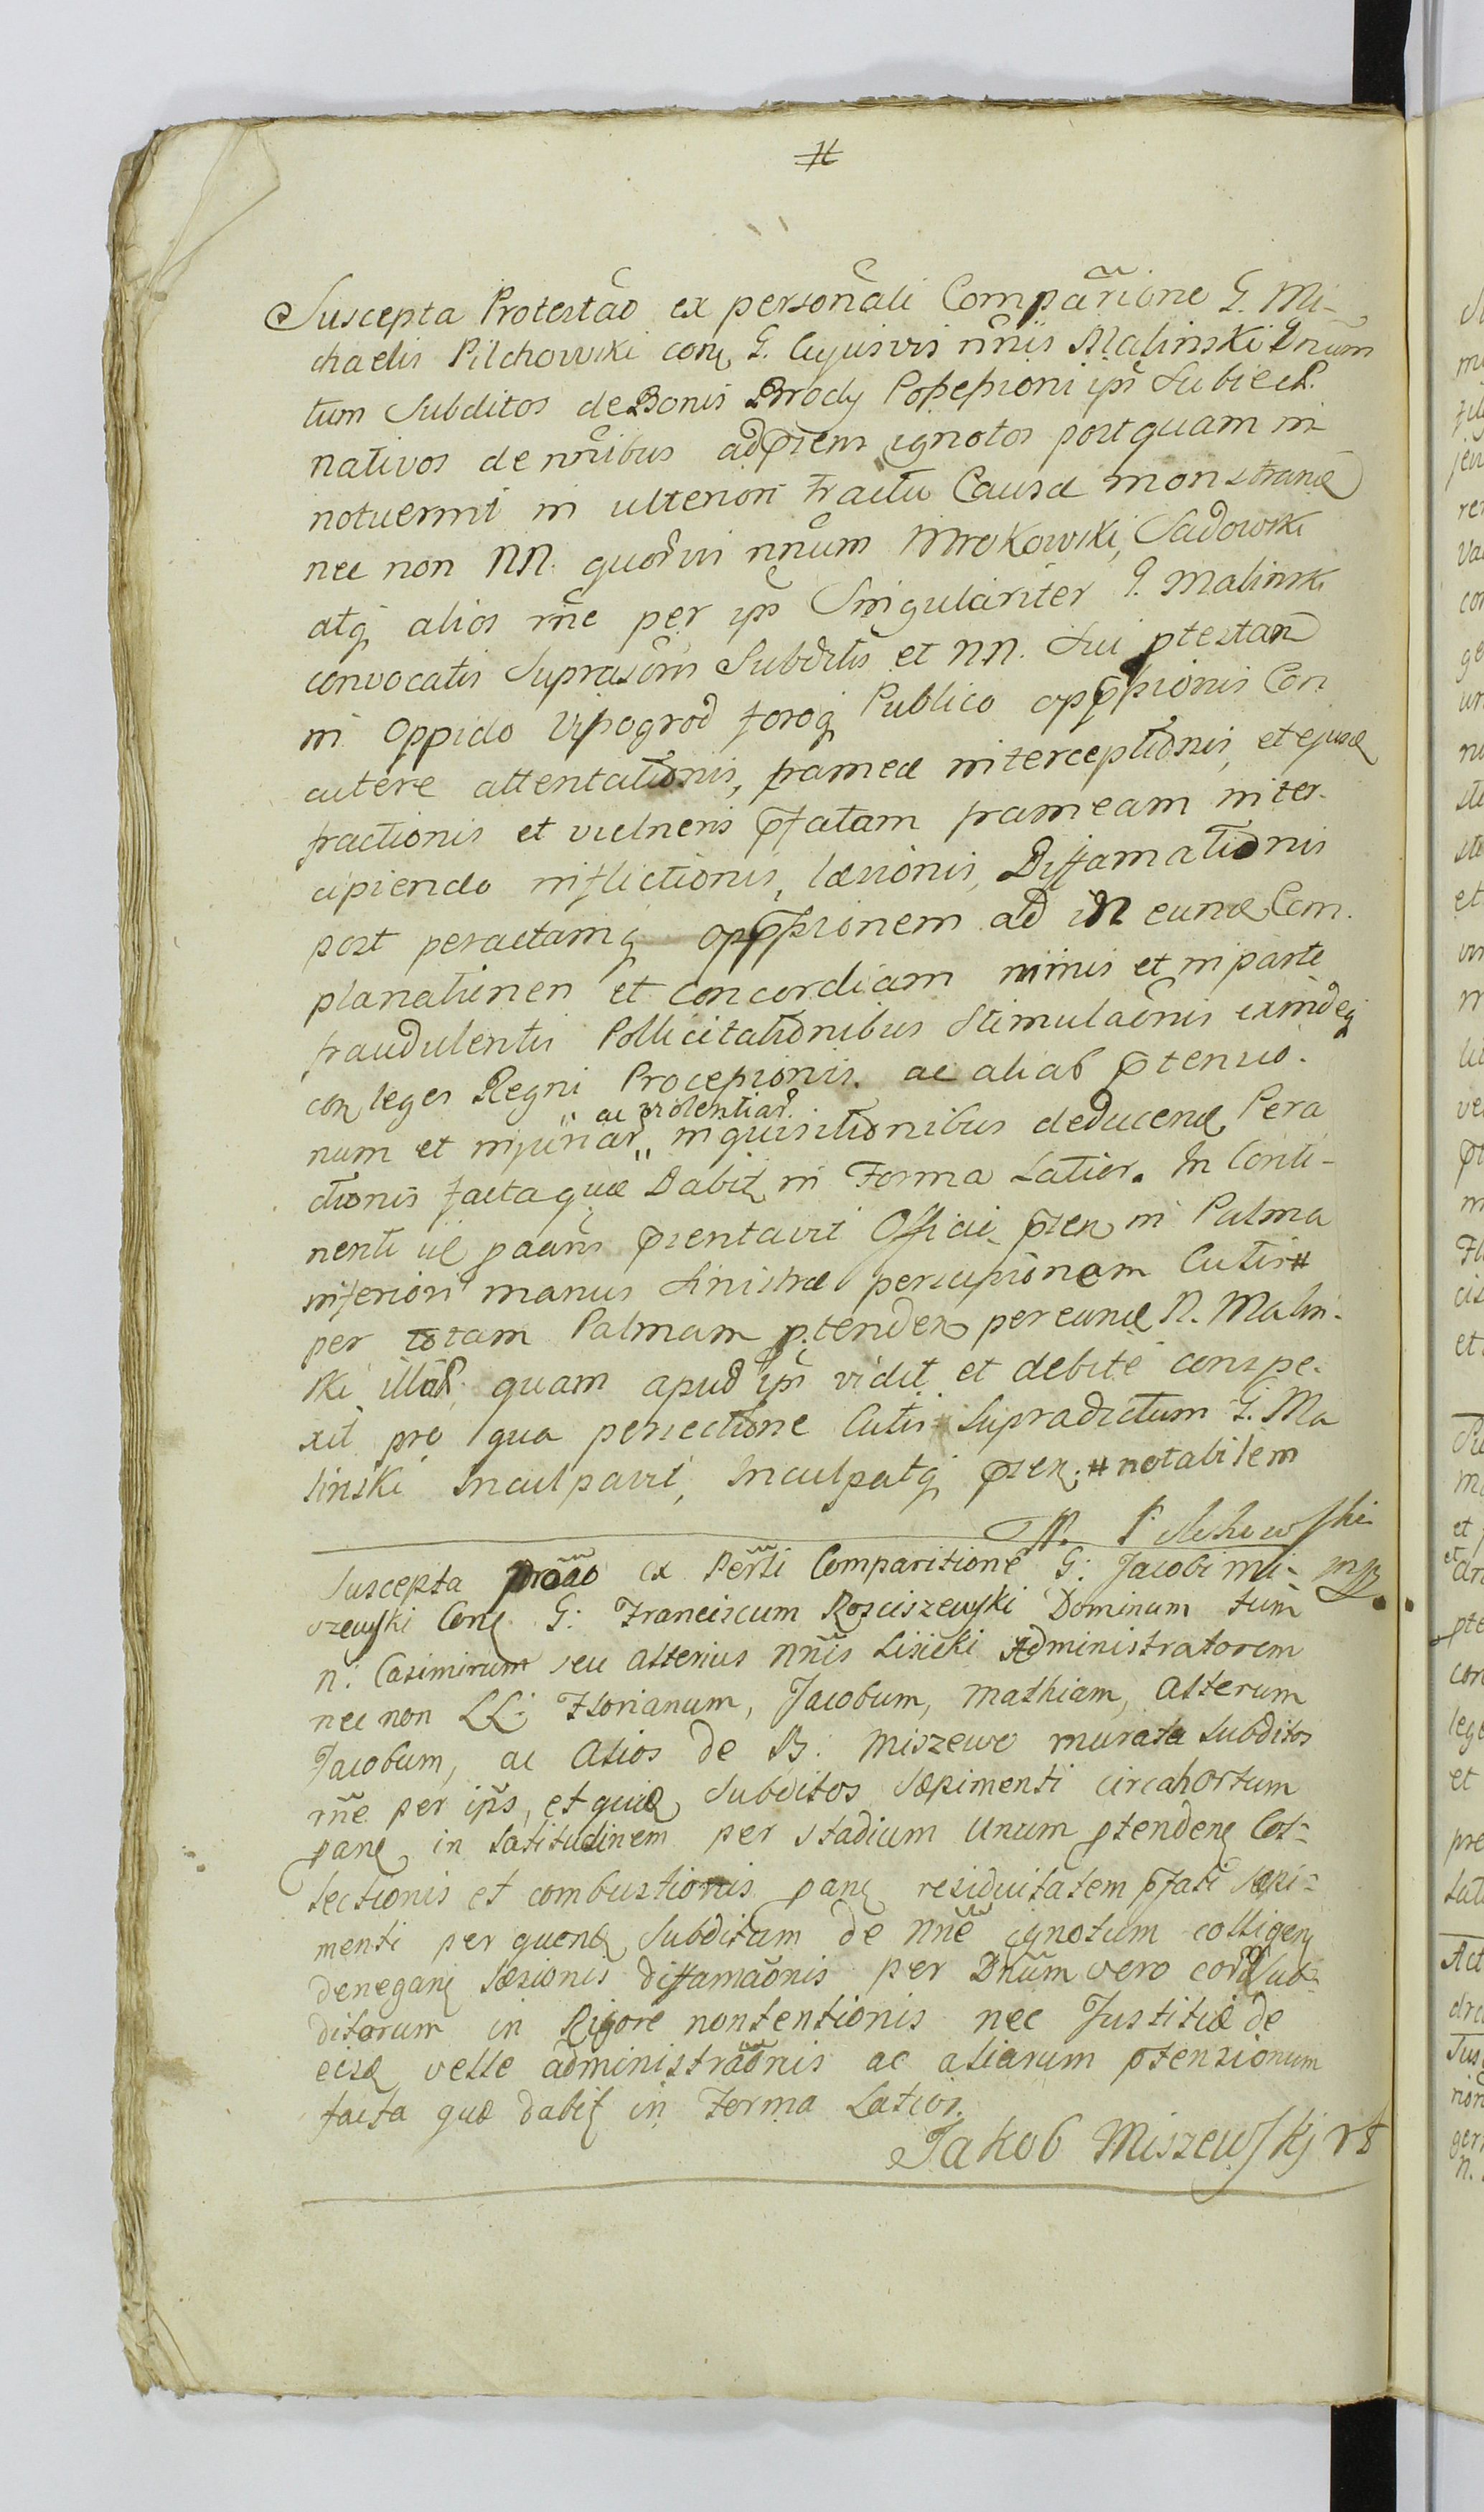 #
Suscepta Protestão ex personali Comparĩone G. Mi-
chaelis Pilchowski con G. Cujusvis nñis Malinski Dnum
tum Subditos de Bonis Brody Possessioni ips Subject.
nativos de nñibus ad prens ignotos postquam in
notuerint in ulteriori tractu Causæ monstrand
nec non NN. quorvis nñum Mrokowski, Sadowski
atq alios rñe per ips Singulariter G. Malinski
convocatis Suprascrs Subditis et NN. Sui ptestan
in Oppido Wyssogrod foroq Publico opprssionis Con
cutere attentationis, frameæ interceptionis, et ejusd
fractionis et vulneris pfatam frameam inter-
cipiendo inflictionis, læsionis, Diffamationis
post peractamq opprssionem ad eund Com-
planationen et concordiam nimis et in parte
fraudulentis Pollicitationibus Stimulaõnis eximdeq
con leges Regni Processionis. ac aliar ptensio-
num et injuriar " ac violentiar " inquisitionibus deducend Pera
ctionis facta quæ Dabit in Forma Latior. In Conti-
nenti præntavit Officio pren in Palma
inferiori manus sinistræ percussionem Cutis #
per totam Palmam ptenden per eund N. Malin-
ski illat. quam apud ips vidit et debite conspe-
xit pro qua persectione Cutis Supradictum G. Ma
linski Inculpavit, Inculpatq pren. # notabilem
M. Pilchowski
mp
Suscepta prõao ex Perñli Comparitione G: Jacobi Mi-
szewski Con G: Franciscum Rosciszewski Dominum tum
N: Casimirum seu alterius Nñis Lisicki Administratorem
nec non LL: Florianum, Jacobum, Mathiam, Alterum
Jacobum, ac Alios de B: Miszewo murata Subditos
rñe per ips, et quid Subditos Sæpimenti circa hortum
pan in Latitudinem per stadium Unum ptenden Col-
lectionis et combustionis pan residuitatem pfati Sæpi-
menti per quend Subditum de Nñe ignotum colligen
denegan Læsionis diffamaõnis per Dnum vero cord Sub-
ditorum in Rigore nontentionis nec Justitiæ de
eisd velle administraõnis ac aliarum ptensionum
facta quæ dabit in Forma Latior.
Jakob Miszewskj